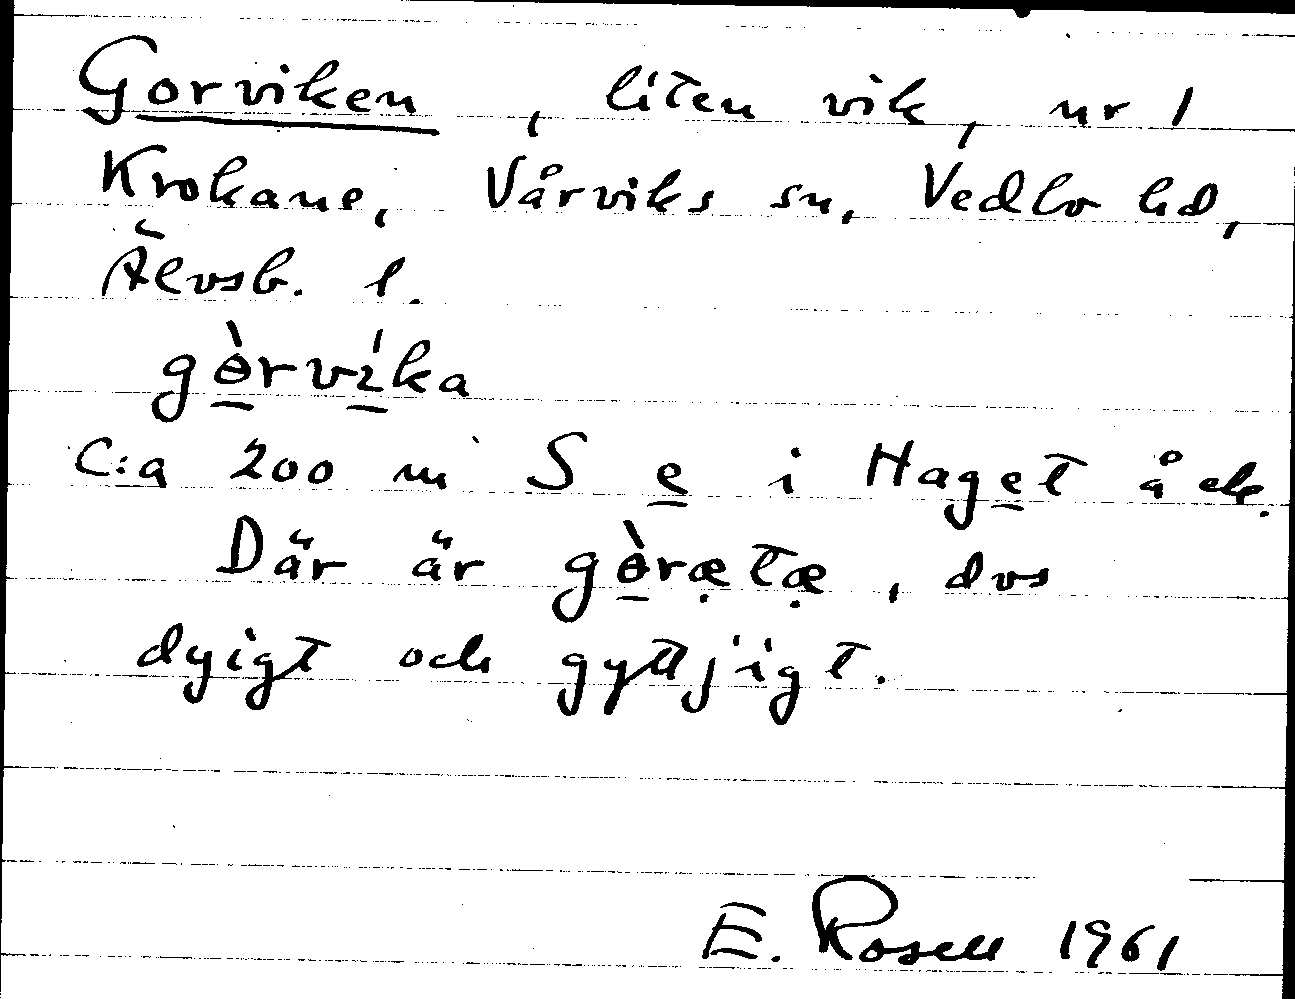 Gorviken, liten vik, nr 1
Krokane, Vårviks sn, Vedbo hd,
Älvsb. l.
gɵ̀rvíka
C:a 200 m S e i Haget åek.
Där är gɵ̀ræ̣tæ̣, dvs
dyigt och gyttjigt.
E. Rosell 1961